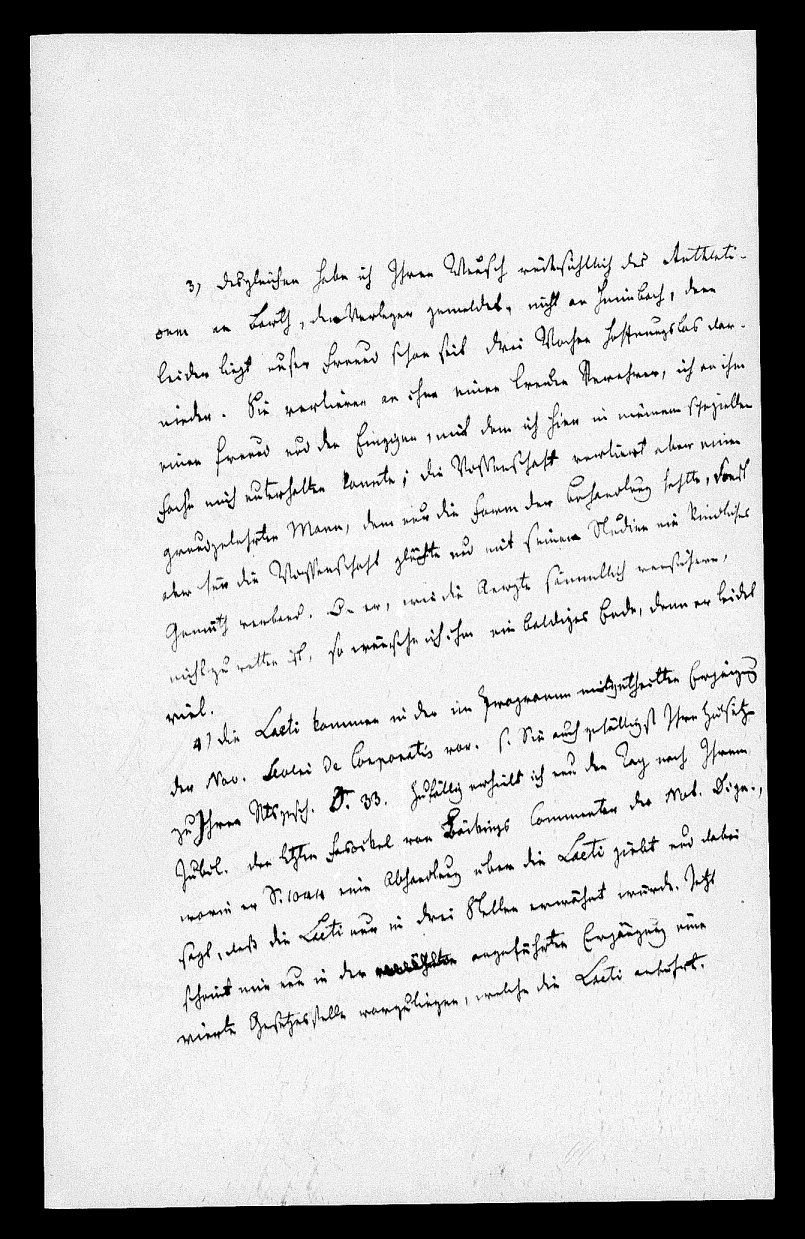 3) Desgleichen habe ich Ihren Wunsch rücksichtlich des Authenti-
cum an Barth, den Verleger gemeldet, nicht an Heimbach, denn
leider liegt unser Freund schon seit drei Wochen hoffnungslos dar-
nieder. Sie verlieren an ihm einen treuen Verehrer, ich an ihm
einen Freund und den Einzigen, mit dem ich hier in meinem speziellen
Fache mich unterhalten konnte; die Wissenschaft verliert aber einen
grundgelehrten Mann, dem nur die Form der Behandlung fehlte, sonst
aber für die Wissenschaft glühte und mit seinen Studien ein kindliches
Gemüth verband. Da er, wie die Aerzte sämmtlich versichern,
nicht zu retten ist, so wünsche ich ihm ein baldiges Ende, denn er leidet
viel.
4) die Laeti kommen in der im Programm mitgetheilten Ergänzung
der Nov. Severi de Corporatis vor. s. Sie auch gefälligst Ihre Zusätze
zu Ihrer Rtsgesch. S. 33. Zufällig erhielt ich nun den Tag nach Ihrem
Jubil. den letzten Fascikel von Böckings Commentar der Not. Dign.,
worin er S. 1044 eine Abhandlung über die Laeti giebt und dabei
sagt, daß die Laeti nur in drei Stellen erwähnt würde. Jetzt
scheint mir nun in der angeführten Ergänzung eine
vierte Gesetzesstelle vorzuliegen, welche die Laeti anführt.